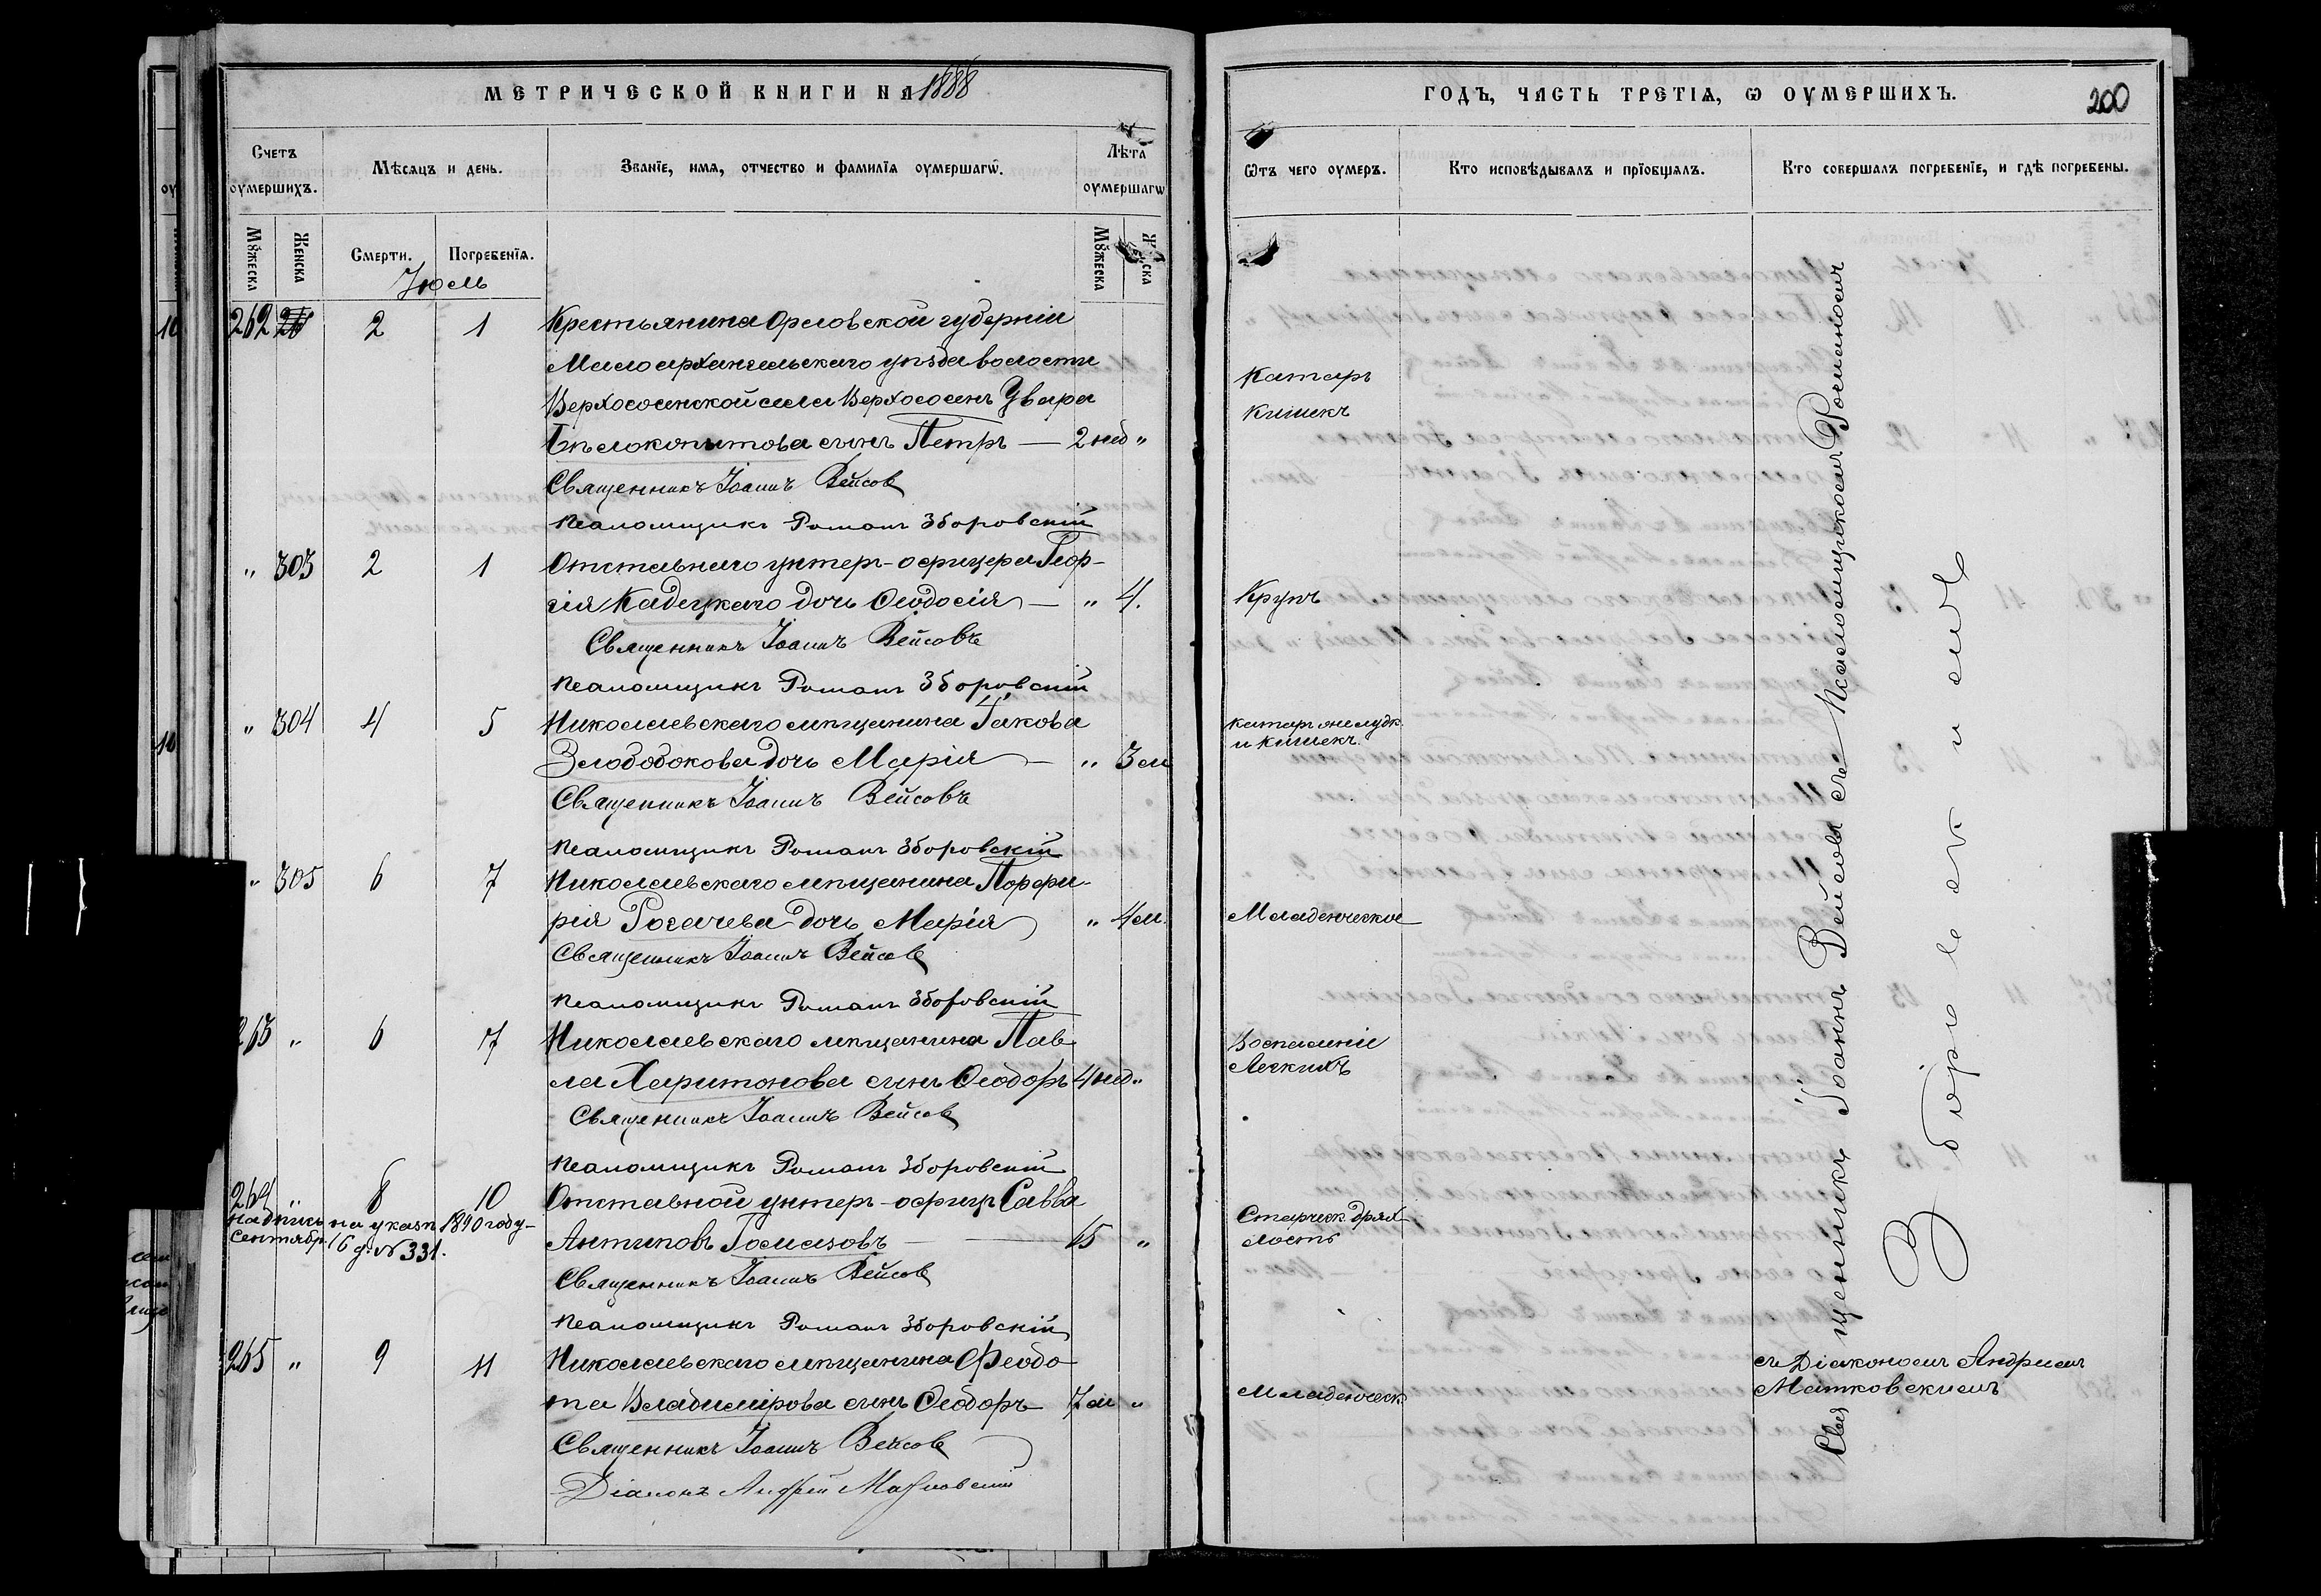 МЕТРИЧЕСКОЙ КНИГИ НА 1888
Счетъ оумершихъ.
Мѣсяцъ и день.
Званїе, имя, отчество и фамилїя оумершагѡ.
Лѣта оумершагѡ
Мꙋжеска
Женска
Смерти.
Погребенїя.
Мꙋжеска
Июль
262 2 1 Крестьянина Орловской губерніи
Малоархангельскаго уѣзда волости
Верхососенской села Верхососенъ Увара
Бѣлокопытова сынъ Петръ — 2 нед "
Священникъ Іоаннъ Вейсов
Псаломщикъ Романъ Зборовскій
" 303 2 1 Отставнаго унтеръ-офицера Геор-
гія Кадецкаго дочь Ѳеодосія — " 4.
Священникъ Іоаннъ Вейсовъ
Псаломщикъ Романъ Зборовскій
" 304 4 5 Николаевскаго мѣщанина Іакова
Злободокова дочь Марія — " 3 м
Священникъ Іоаннъ Вейсовъ
Псаломщикъ Романъ Зборовскій
" 305 6 7 Николаевскаго мѣщанина Порфи-
рія Рогачева дочь Марія " 4 м.
Священникъ Іоаннъ Вейсов
Псаломщикъ Романъ Зборовскій
263 " 6 7 Николаевскаго мѣщанина Пав-
ла Харитонова сынъ Ѳеодоръ 4 нед "
Священникъ Іоаннъ Вейсов
Псаломщикъ Романъ Зборовскій
264 " 8 10 Отставной унтеръ-офицръ Савва
надпись на указъ 1890 году
Сентябр. 16 д. № 331.
Антиповъ — "
Священникъ Іоаннъ Вейсов
Псаломщикъ Романъ Зборовскій
265 " 9 11 Николаевскаго мѣщанина Феодо
та Владимірова сынъ Ѳеодоръ 7 м "
Священникъ Іоаннъ Вейсов
Діаконъ Андрей Матковскій
ГОДЪ, ЧАСТЬ ТРЕТІѦ, Ѡ ОУМЕРШИХЪ.
200
Ѿтъ чего оумеръ.
Кто исповѣдывалъ и прїобщалъ.
Кто совершалъ погребенїе, и гдѣ погребены.
Катаръ
кишекъ
Крупъ
катаръ желудк.
и кишекъ.
Младенческая
Воспаленіе
Легкихъ
Старческ. дрях
лость
Младенческ
Священникъ Іоаннъ Вейсовъ съ Псаломщикомъ Романомъ
Зборовскимъ
съ Діакономъ Андреемъ
Матковскимъ